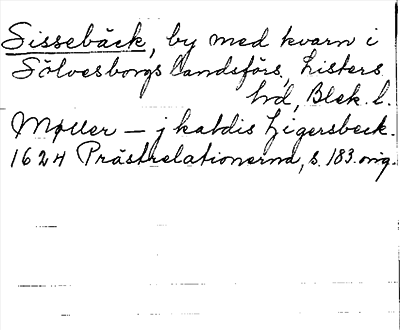 Sissebäck, by med kvarn i
Sölvesborgs landsförs, Listers
hd, Blek. l.
Møller – j kaldis Ligersbeck.
1624 Prästrelationerna, s. 183. orig.